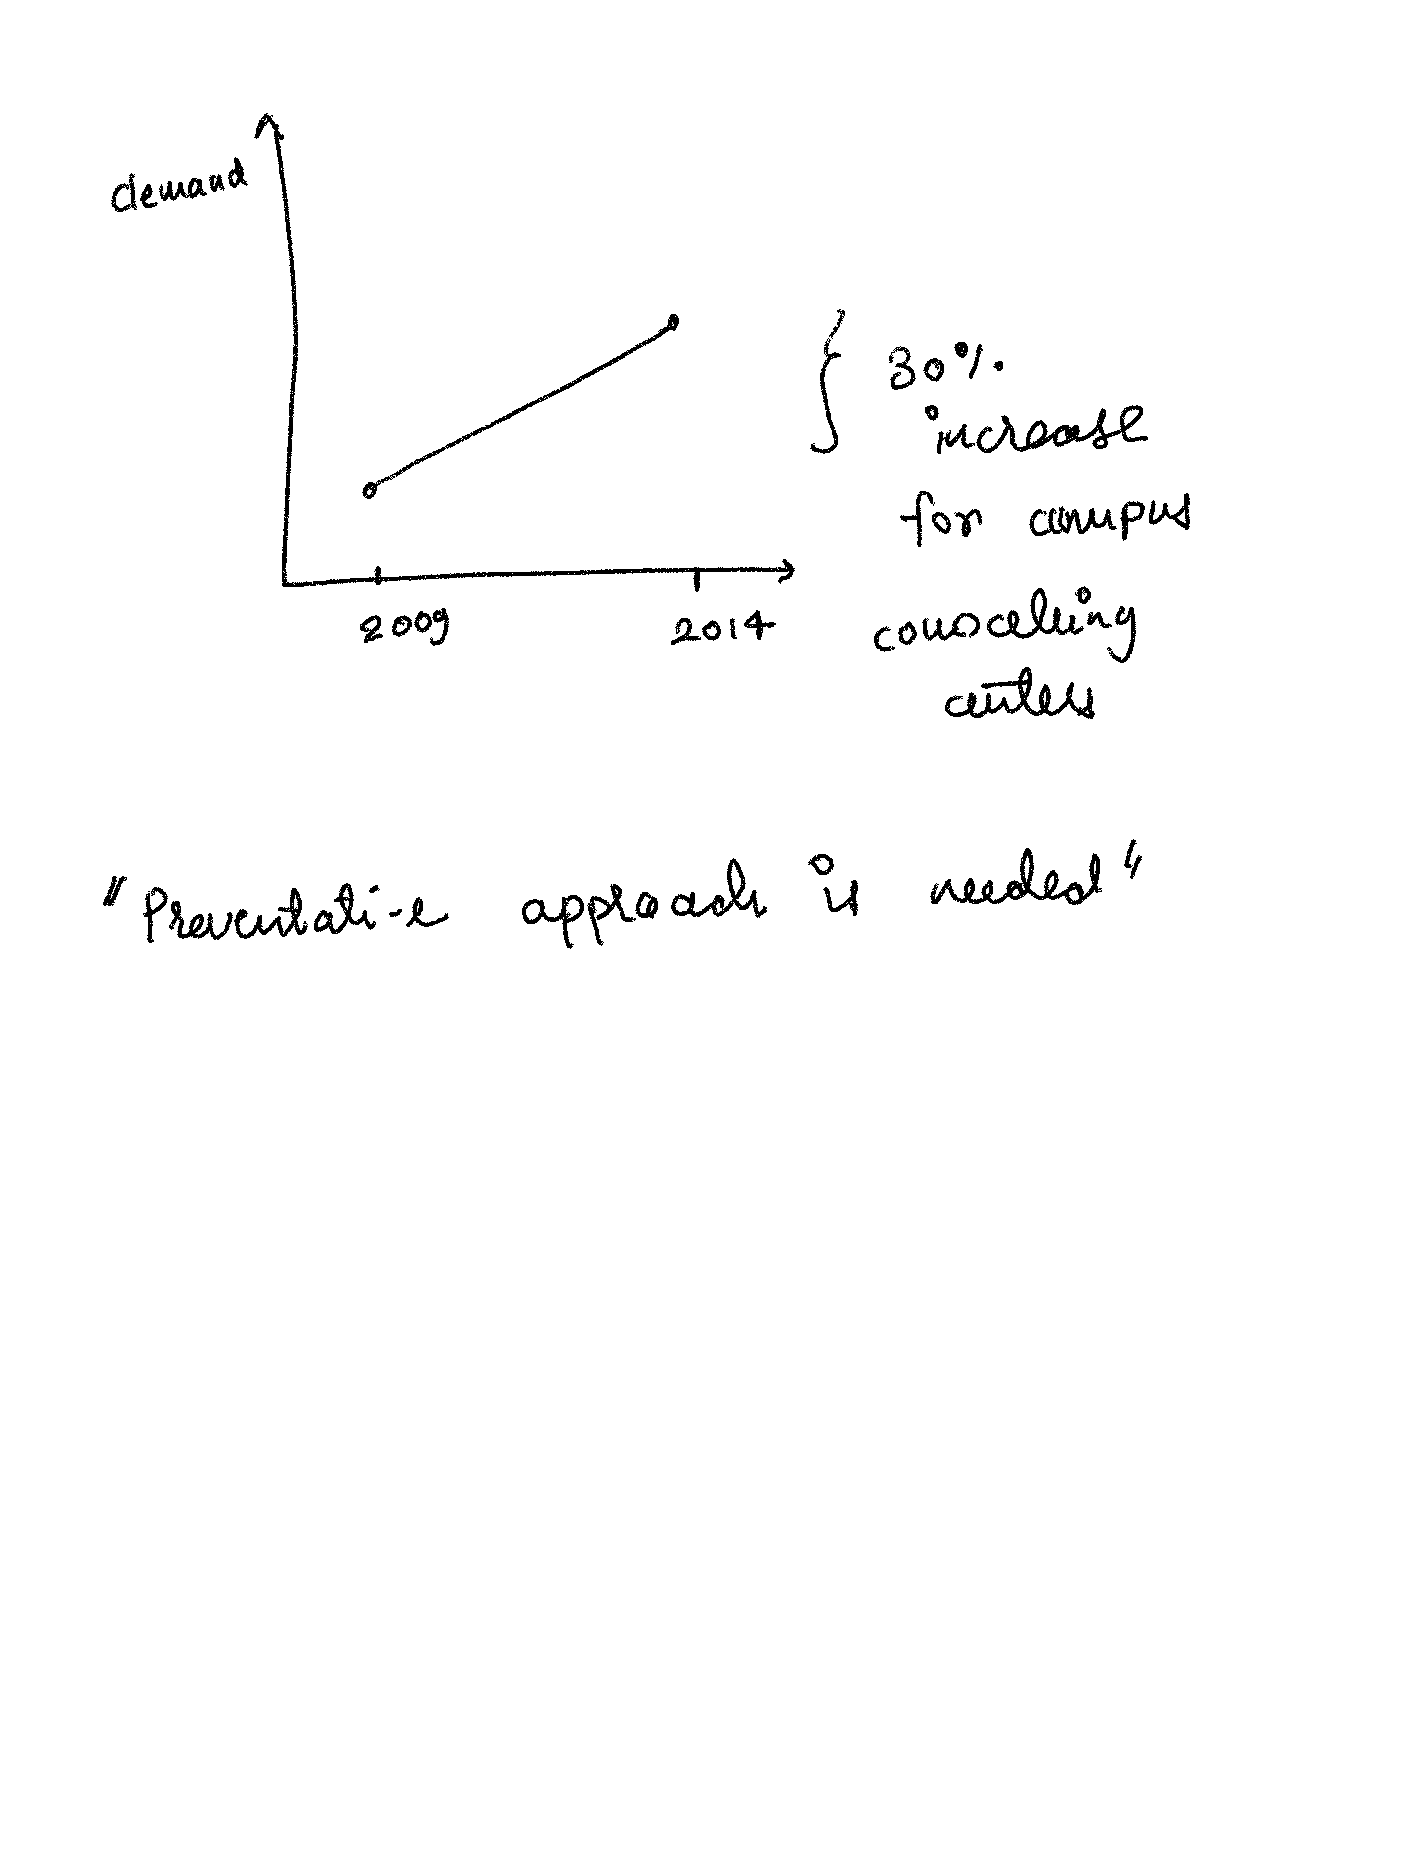 demand
2009
2014
30%.
increase
for campus
counceling
centers
"Preventati-e approach is needed"